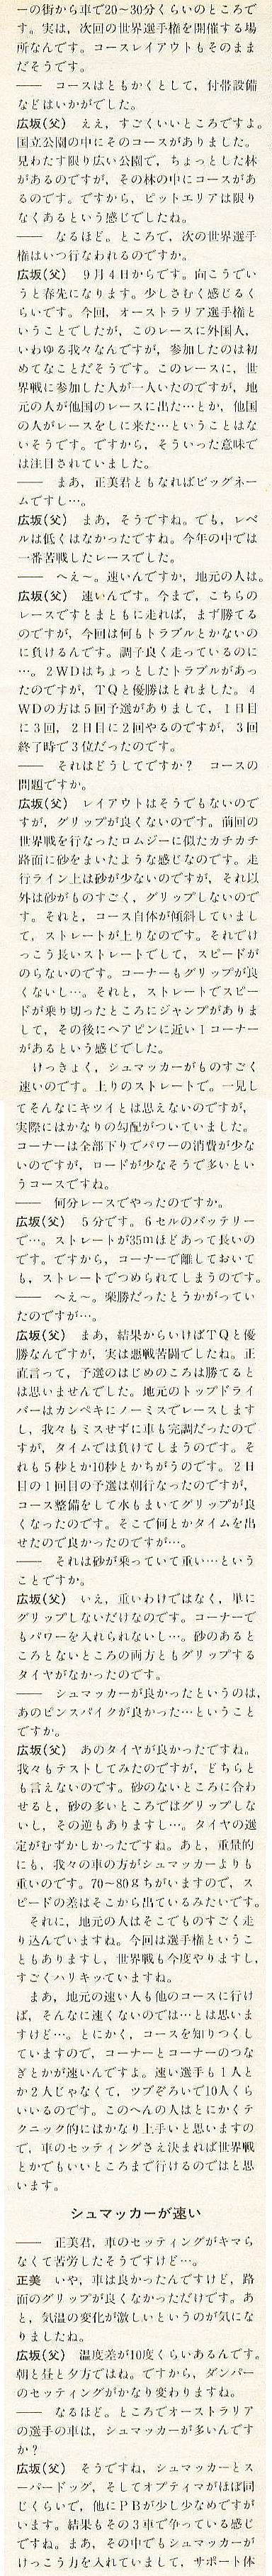 ーの街から車で20〜30分くらいのところで
す。実は，次回の世界選手権を開催する場
所なんです。コースレイアウトもそのまま
だそうです。
―― コースはともかくとして，付帯設備
などはいかがでした。
広坂(父) ええ，すごくいいところですよ。
国立公園の中にそのコースがありました。
見わたす限り広い公園で，ちょっとした林
があるのですが，その林の中にコースがあ
るのです。ですから，ピットエリアは限り
なくあるという感じでしたね。
―― なるほど。ところで，次の世界選手
権はいつ行なわれるのですか。
広坂(父) 9月4日からです。向こうでい
うと春先になります。少しさむく感じるく
らいです。今回，オーストラリア選手権と
いうことでしたが，このレースに外国人，
いわゆる我々なんですが，参加したのは初
めてなことだそうです。このレースに，世
界戦に参加した人が一人いたのですが，地
元の人が他国のレースに出た…とか，他国
の人がレースをしに来た…ということはな
いそうです。ですから，そういった意味で
は注目されていました。
―― まあ，正美君ともなればビッグネー
ムですし…。
広坂(父) まあ，そうですね。でも，レベ
ルは低くはなかったですね。今年の中では
一番苦戦したレースでした。
―― へえ〜。速いんですか，地元の人は。
広坂(父) 速いんです。今まで，こちらの
レースですとまともに走れば，まず勝てる
のですが，今回は何もトラブルとかないの
に負けるんです。調子良く走っているのに
…。2WDはちょっとしたトラブルがあっ
たのですが，TQと優勝はとれました。4
WDの方は5回予選がありまして，1日目
に3回，2日目に2回やるのですが，3回
終了時で3位だったのです。
―― それはどうしてですか？ コースの
問題ですか。
広坂(父) レイアウトはそうでもないので
すが，グリップが良くないのです。前回の
世界戦を行なったロムジーに似たカチカチ
路面に砂をまいたような感じなのです。走
行ライン上は砂が少ないのですが，それ以
外は砂がものすごく，グリップしないので
す。それと，コース自体が傾斜していまし
て，ストレートが上りなのです。それでけ
っこう長いストレートでして，スピードが
のらないのです。コーナーもグリップが良
くないし…。それと，ストレートでスピー
ドが乗り切ったところにジャンプがありま
して，その後にヘアピンに近い1コーナー
があるという感じでした。
けっきょく，シュマッカーがものすごく
速いのです。上りのストレートで。一見し
てそんなにキツイとは思えないのですが，
実際にはかなりの勾配がついていました。
コーナーは全部下りでパワーの消費が少な
いのですが，ロードが少なそうで多いとい
うコースですね。
―― 何分レースでやったのですか。
広坂(父) 5分です。6セルのバッテリー
で…。ストレートが35mほどあって長いの
です。ですから，コーナーで離しておいて
も，ストレートでつめられてしまうのです。
―― へえ〜。楽勝だったとうかがってい
たのですが…。
広坂(父) まあ，結果からいけばTQと優
勝なんですが，実は悪戦苦闘でしたね。正
直言って，予選のはじめのころは勝てると
は思いませんでした。地元のトップドライ
バーはカンペキにノーミスでレースします
し，我々もミスせずに車も完調だったので
すが，タイムでは負けてしまうのです。そ
れも5秒とか10秒とかちがうのです。2日
目の1回目の予選は朝行なったのですが，
コース整備をして水もまいてグリップが良
くなったのです。そこで何とかタイムを出
せたので良かったのですが…。
―― それは砂が乗っていて重い…という
ことですか。
広坂(父) いえ，重いわけではなく，単に
グリップしないだけなのです。コーナーで
もパワーを入れられないし…。砂のあると
ころとないところの両方ともグリップする
タイヤがなかったのです。
―― シュマッカーが良かったというのは，
あのピンスパイクが良かった…ということ
ですか。
広坂(父) あのタイヤが良かったですね。
我々もテストしてみたのですが，どちらと
も言えないのです。砂のないところに合わ
せると，砂の多いところではグリップしな
いし，その逆もありますし…。タイヤの選
定がむずかしかったですね。あと，重量的
にも，我々の車の方がシュマッカーよりも
重いのです。70〜80gちがいますので，ス
ピードの差はそこから出ているみたいです。
それに，地元の人はそこでものすごく走
り込んでいますね。今回は選手権というこ
ともありますし，世界戦も今度やりますし，
すごくハリキッていますね。
まあ，地元の速い人も他のコースに行け
ば，そんなに速くないのでは…とは思いま
すけど…。とにかく，コースを知りつくし
ていますので，コーナーとコーナーのつな
ぎとかが速いんですよ。速い選手も1人と
か2人じゃなくて，ツブぞろいで10人くら
いいるのです。このへんの人はとにかくテ
クニック的にはかなり上手いと思いますの
で，車のセッティングさえ決まれば世界戦
とかでもいいところまで行けるのではと思
います。
シュマッカーが速い
―― 正美君，車のセッティングがキマら
なくて苦労したそうですけど…。
正美 いや，車は良かったんですけど，路
面のグリップが良くなかっただけです。あ
と，気温の変化が激しいというのが気にな
りましたね。
広坂(父) 温度差が10度くらいあるんです。
朝と昼と夕方ではね。ですから，ダンパー
のセッティングがかなり変わりますね。
―― なるほど。ところでオーストラリア
の選手の車は，シュマッカーが多いんです
か？
広坂(父) そうですね，シュマッカーとス
ーパードッグ，そしてオプティマがほぼ同
じくらいで，他にPBが少し少なめですが
います。結果もその3車で争っている感じ
ですね。まあ，その中でもシュマッカーが
けっこう力を入れていまして，サポート体